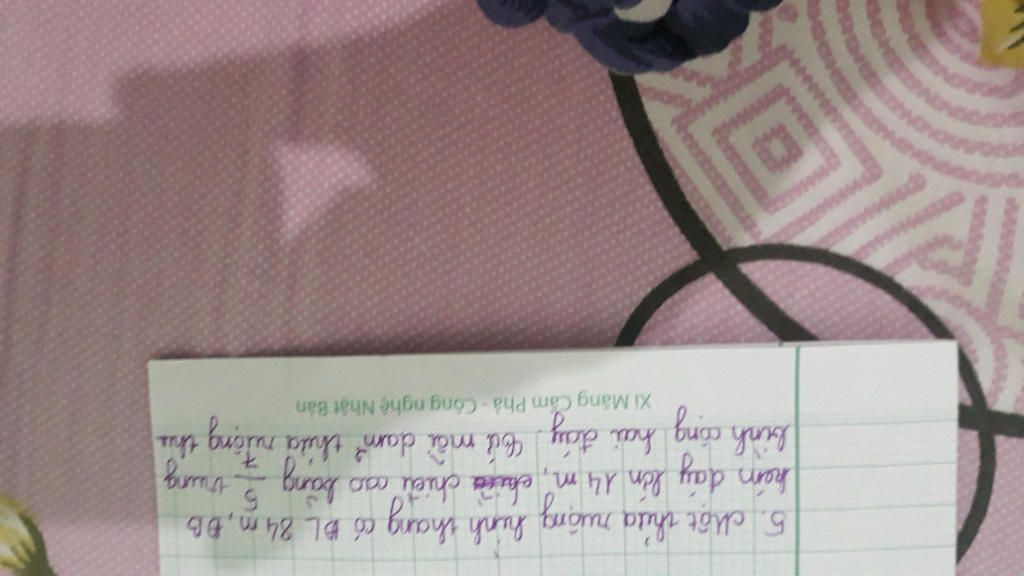 5. Một thửa ruộng hình thang có ĐL 84 m, ĐB
kém đáy lớn 14 m, chiều cao bằng 5/7 trung
bình cộng hai đáy. Cứ mỗi dam² thửa ruộng thu
Xi Măng Cẩm Phả - Công nghệ Nhật Bản